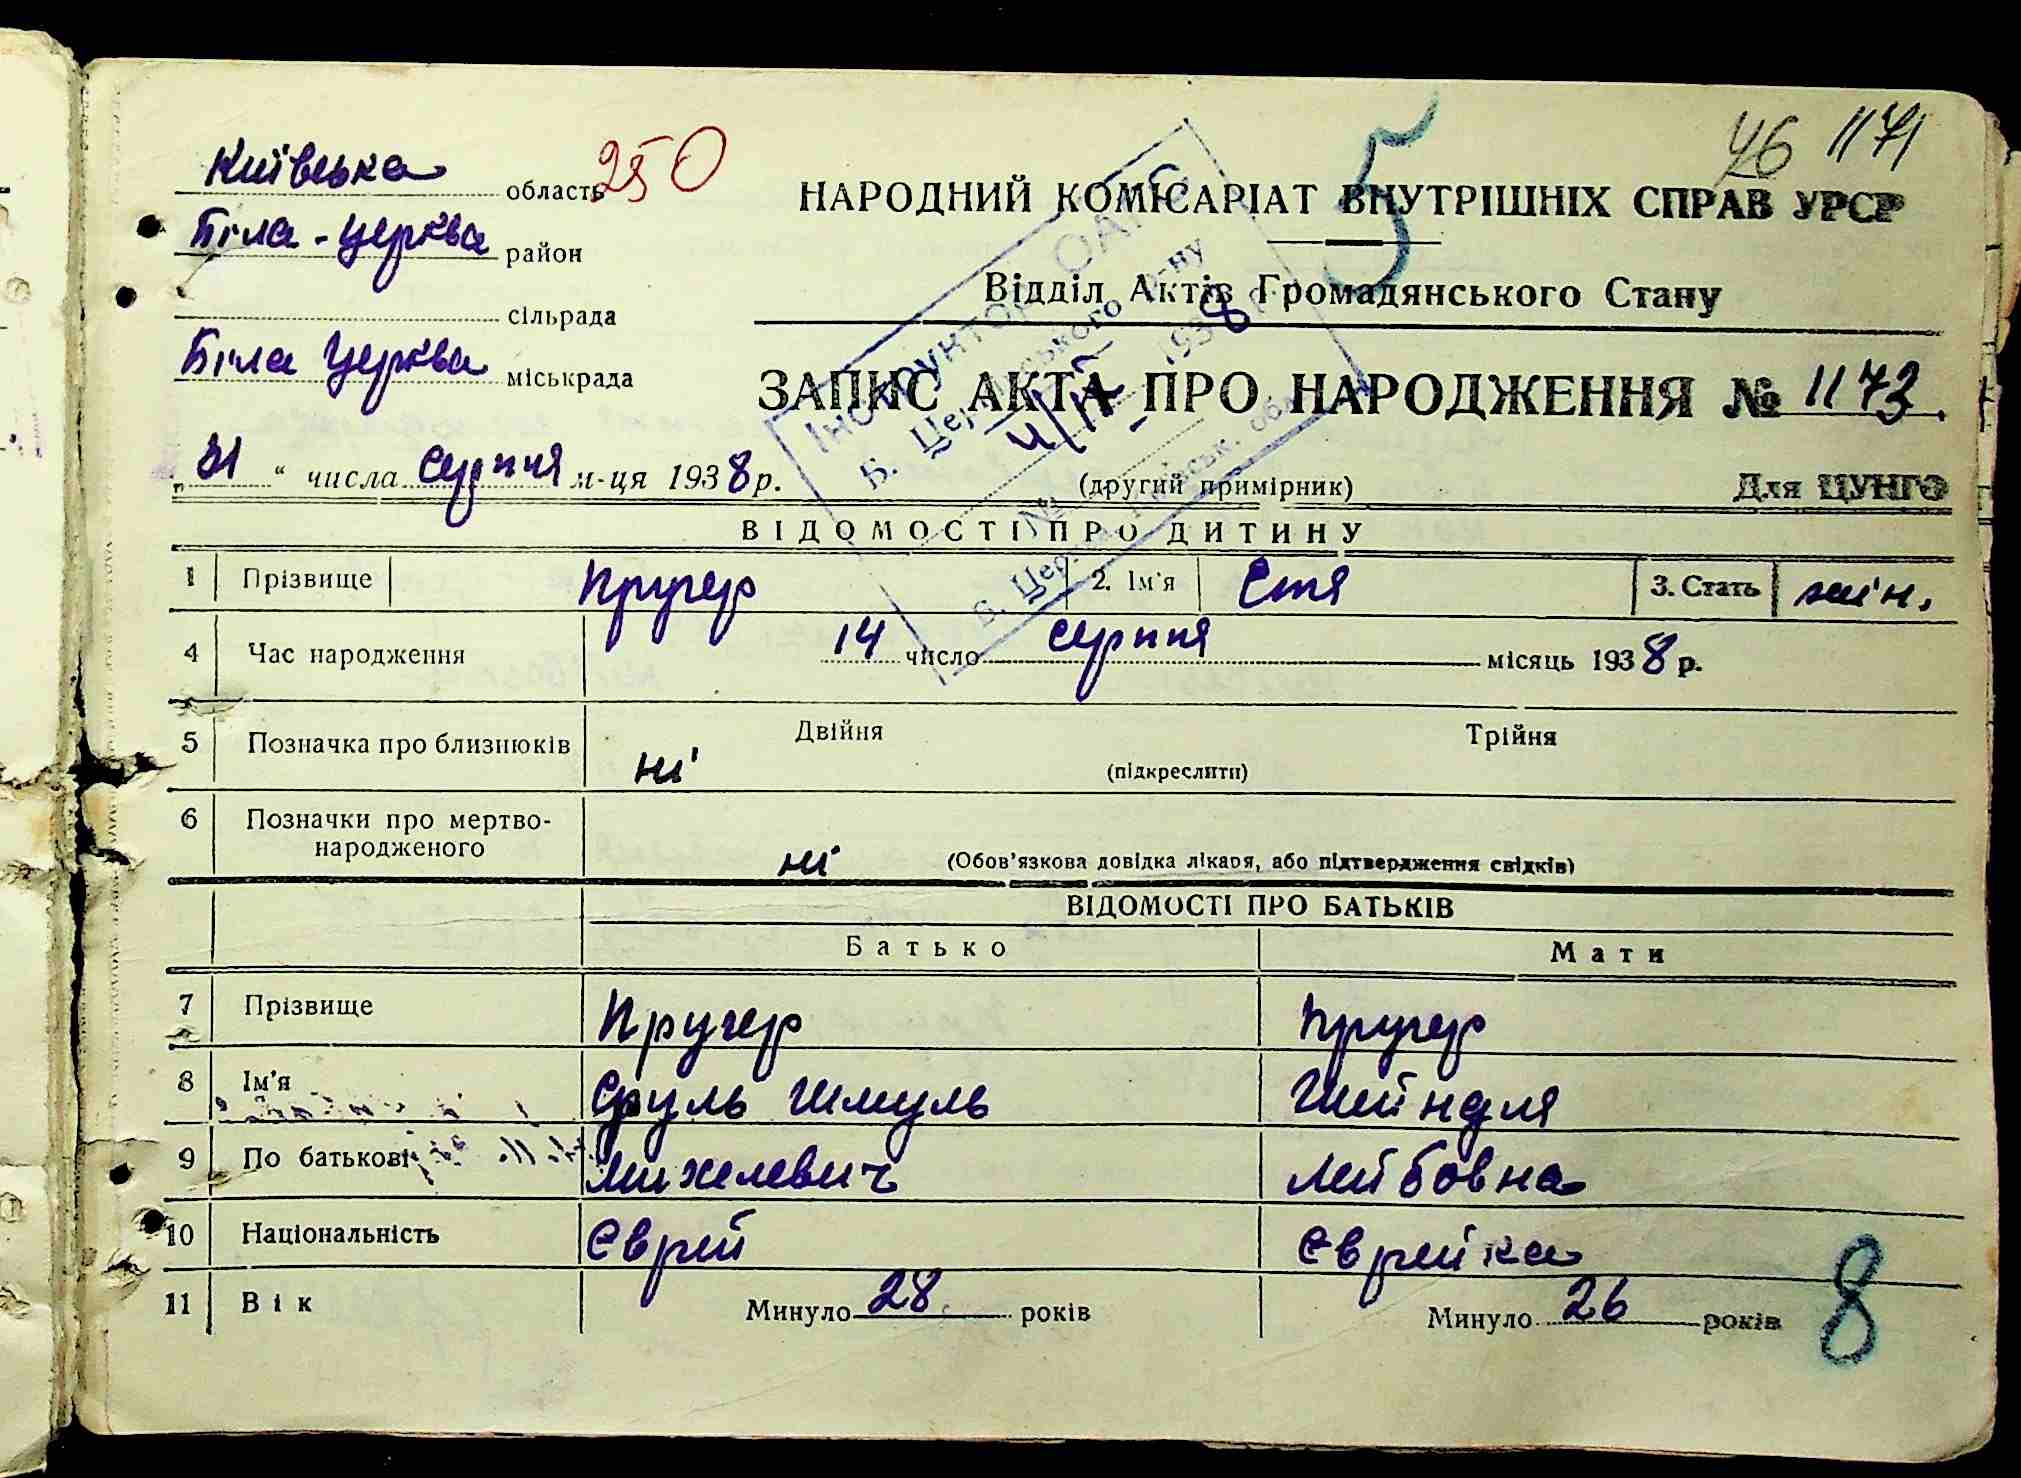 46 1171
250
5
Київська область
НАРОДНИЙ КОМІСАРІАТ ВНУТРІШНІХ СПРАВ УРСР
Біла-Церква район
Відділ Актів Громадянського Стану
сільрада
Біла Церква міськрада
ЗАПИС АКТА ПРО НАРОДЖЕННЯ № 1173.
„31“ числа серпня м-ця 1938 р.
(другий примірник)
Для ЦУНГО
Інструктор ОАГС
Б. Церківського р-ну
4/IX 1938
№
Б. Церква Київськ. обл.
ВІДОМОСТІ ПРО ДИТИНУ
1 Прізвище Кругер 2. Ім'я Етя 3. Стать жін.
4 Час народження 14 число серпня місяць 1938 р.
5 Позначка про близнюків ні Двійня Трійня
(підкреслити)
6 Позначки про мертво-
народженого ні (Обов'язкова довідка лікаря, або підтвердження свідків)
ВІДОМОСТІ ПРО БАТЬКІВ
Батько Мати
7 Прізвище Кругер Кругер
8 Ім'я Сруль Шмуль Шейндля
9 По батькові Михелевич Лейбовна
10 Національність Єврей Єврейка
11 Вік Минуло 28 років Минуло 26 років
8